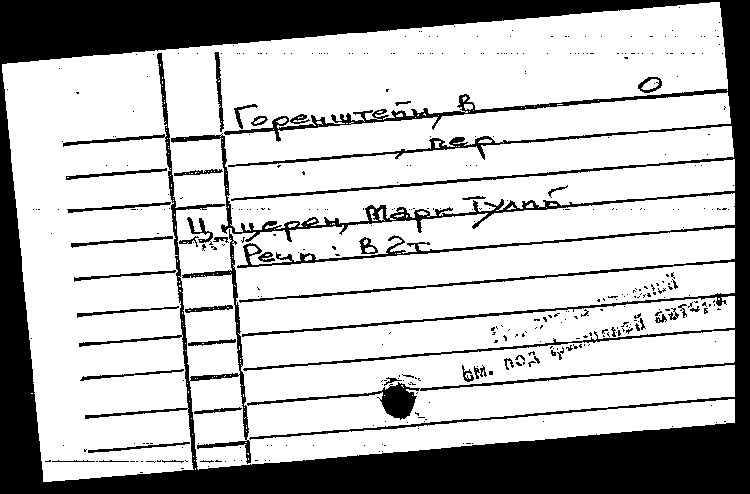 О
Горенштейн, В
, пер.
Цицерон, Марк Туллий.
Речи: В 2т
см. под фамилией автора